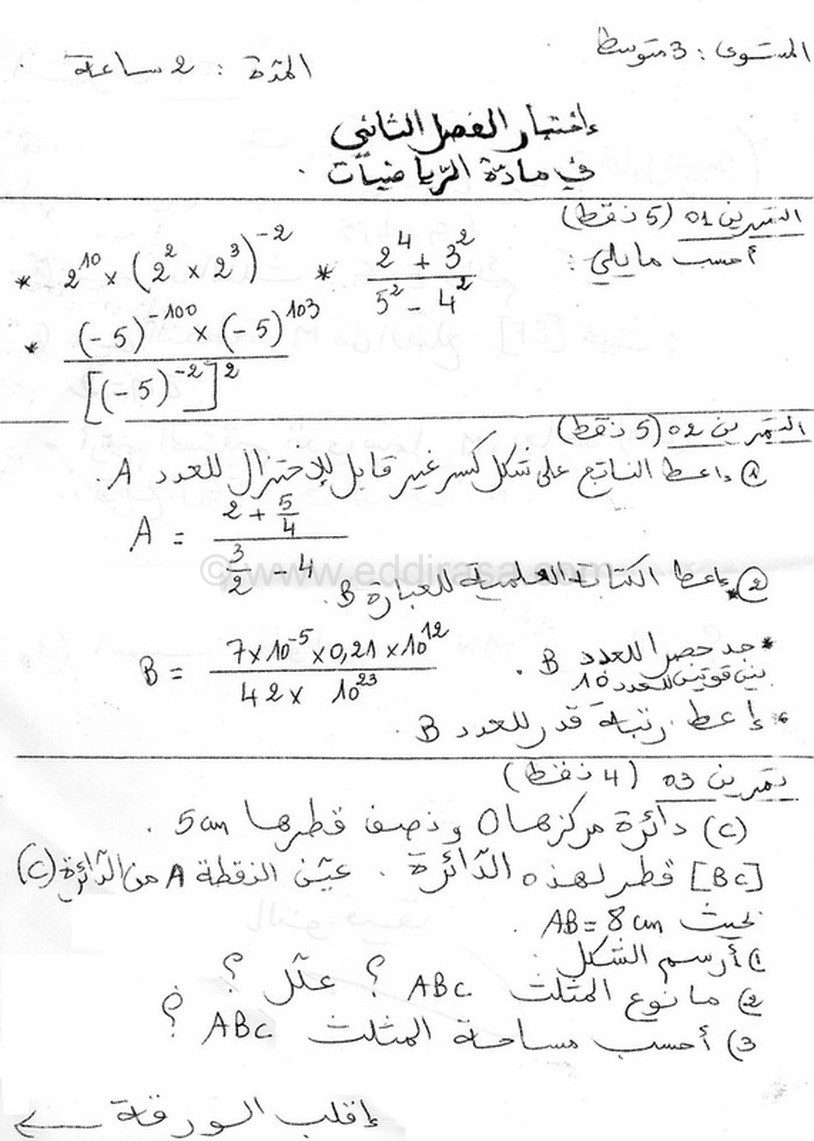 المستوى : 3 متوسط
المدة : 2 ساعة
إختبار الفصل الثاني
في مادة الرياضيات .
التمرين 01 (5 نقط)
أحسب مايلي :
* 2^10 × (2^2 × 2^3)^-2 * (2^4 + 3^2) / (5^2 - 4^2)
* ((-5)^-100 × (-5)^103) / [(-5)^-2]^2
التمرين 02 (5 نقط)
① إعط الناتج على شكل كسر غير قابل للإختزال للعدد A .
A = (2 + 5/4) / (3/2 - 4)
© www.eddirasa.com
② * إعط الكتابة العلمية للعبارة B .
B = (7×10^-5 × 0,21 × 10^12) / (42 × 10^23)
* جد حصرا للعدد B .
بين قوتين للعدد 10
* إعط رتبة قدر للعدد B .
تمرين 03 (4 نقط)
(C) دائرة مركزها O ونصف قطرها 5cm .
[BC] قطر لهذه الدائرة . عيّن النقطة A من الدّائرة (C)
بحيث AB = 8cm .
1) أرسم الشكل .
2) ما نوع المثلث ABC ؟ علّل ؟
3) أحسب مساحة المثلث ABC ؟
إقلب الورقة ←